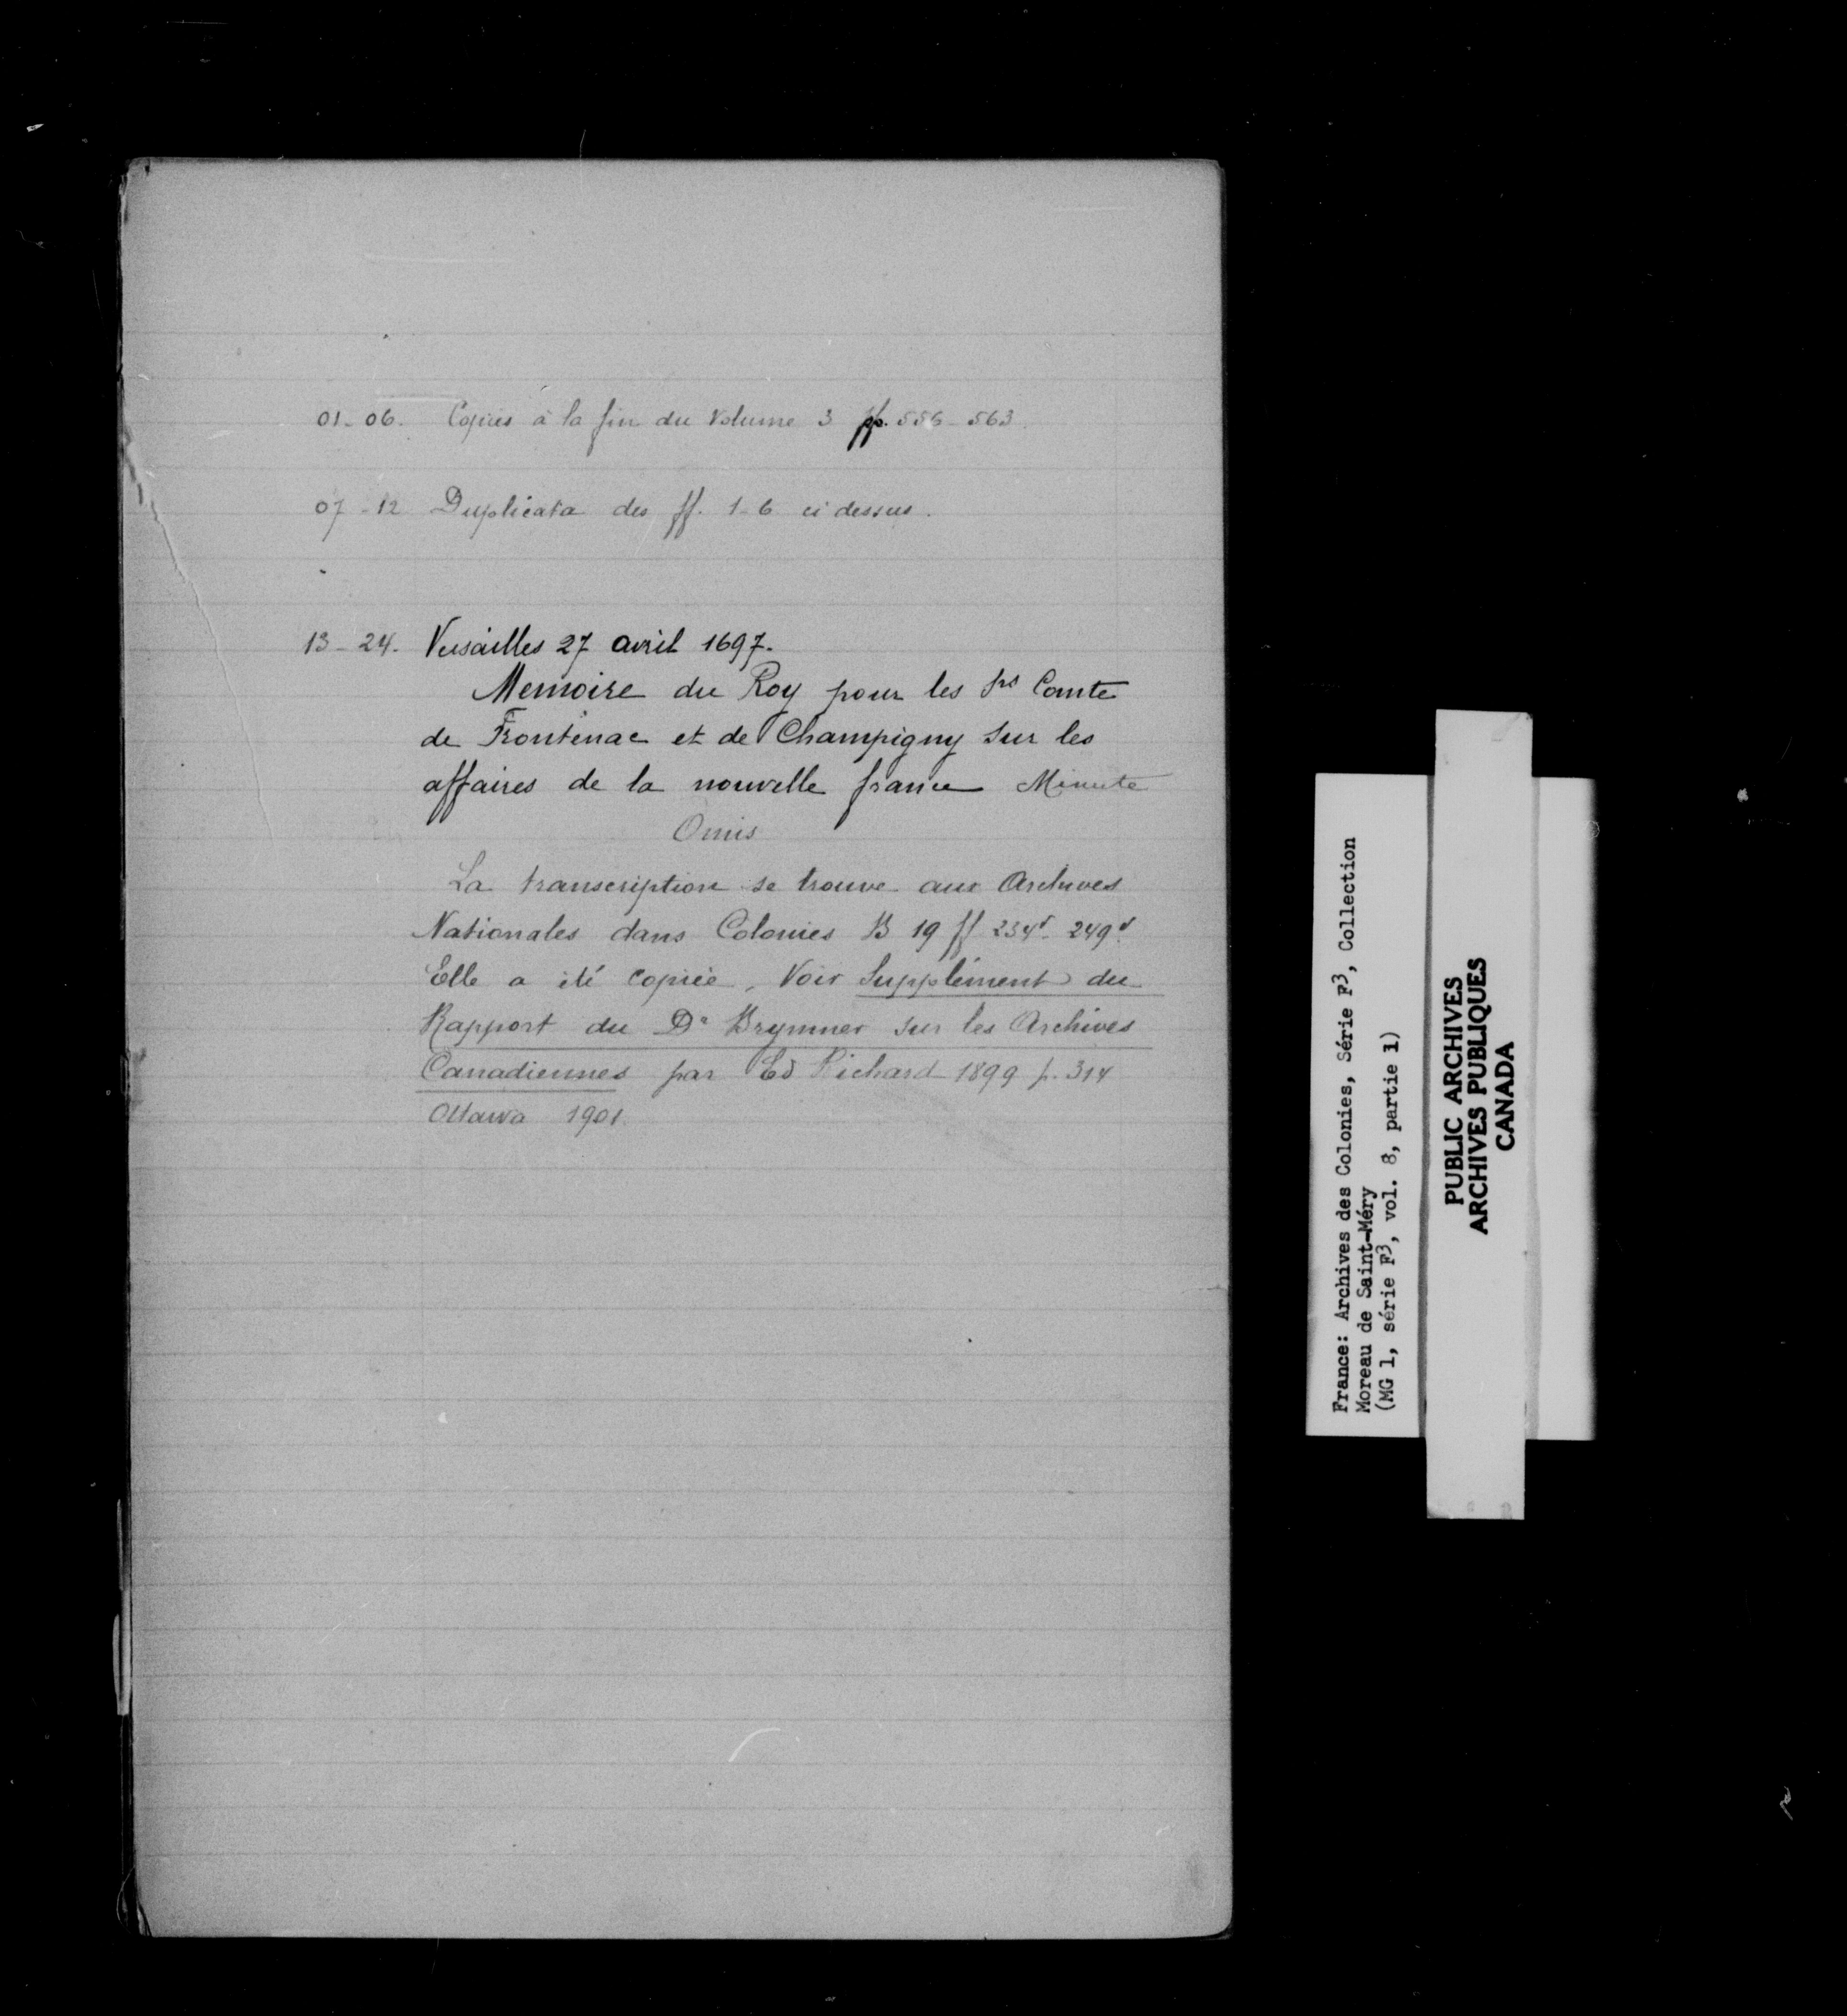 01-06. Copiés à la fin du Volume 3 pp. 556-563.
07-12 Duplicata des ff. 1-6 ci dessus.
13-24. Versailles 27 avril 1697.
Memoire du Roy pour les srs Comte
de Frontenac et de Champigny sur les
affaires de la nouvelle france Minute
Omis
La transcription se trouve aux Archives
Nationales dans Colonies B 19 ff 234v-249v.
Elle a été copiée. Voir Supplément du
Rapport du Dr Brymner sur les Archives
Canadiennes par Ed Richard 1899 p. 314
Ottawa 1901.
France: Archives des Colonies, Série F3, Collection
Moreau de Saint-Méry
(MG 1, série F3, vol. 8, partie 1)
PUBLIC ARCHIVES
ARCHIVES PUBLIQUES
CANADA